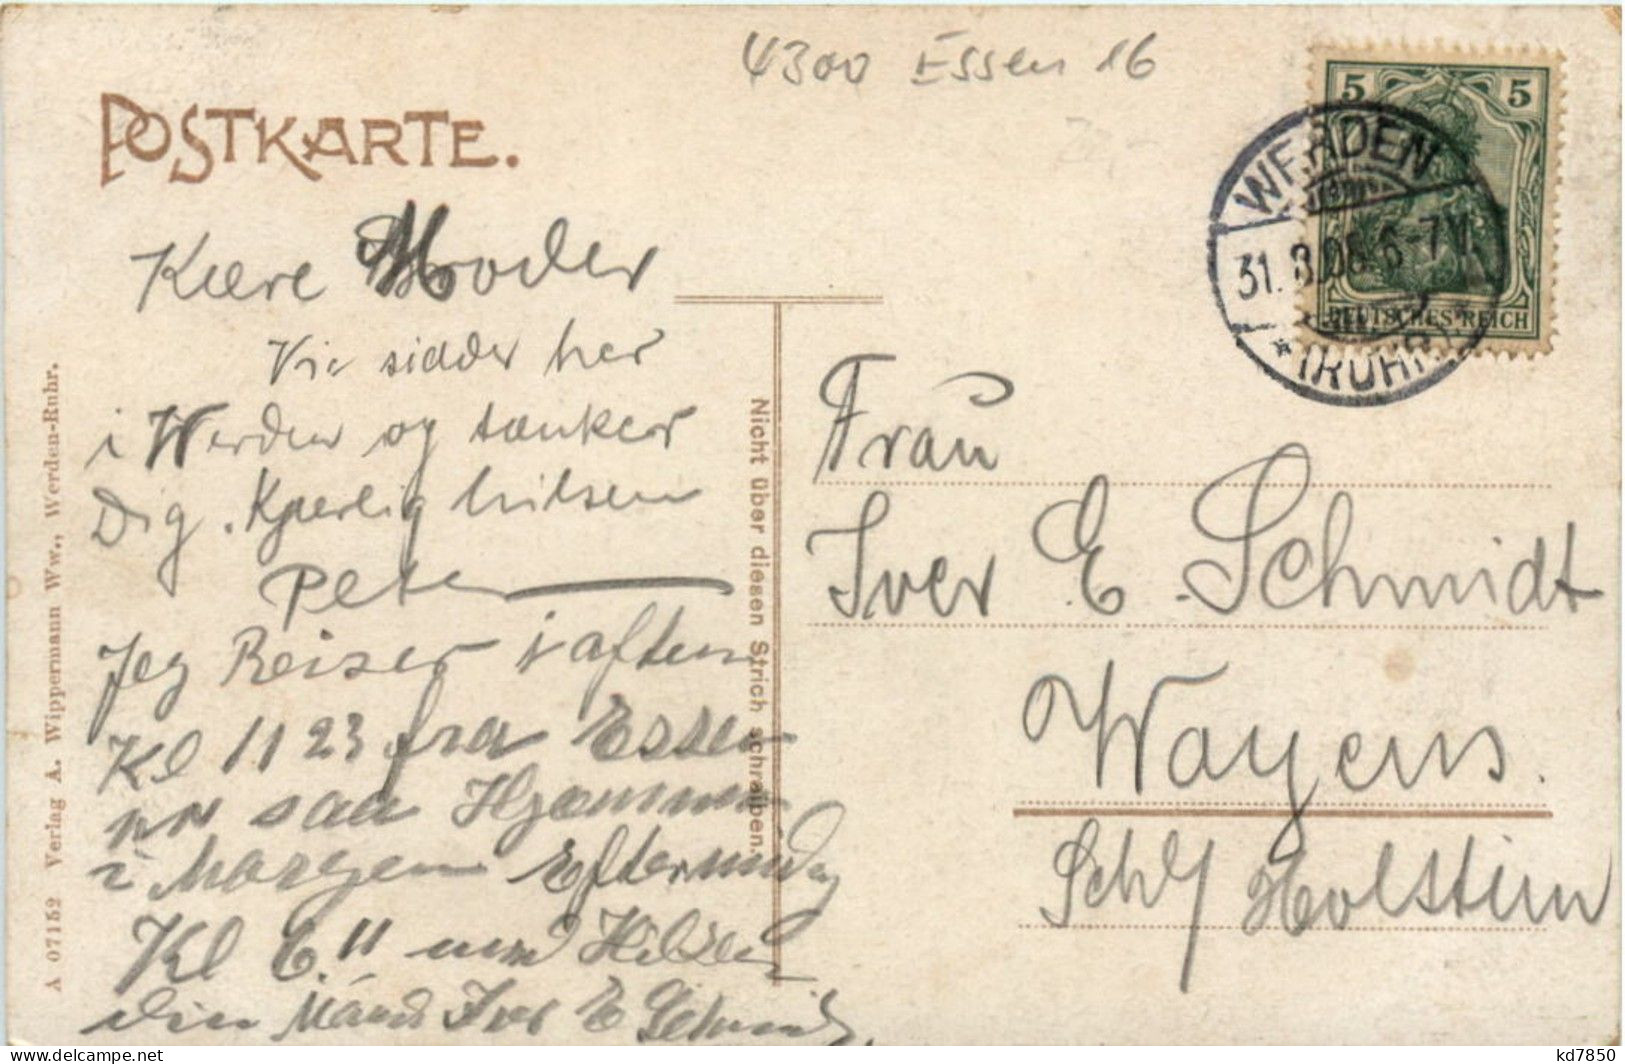 4300 Essen 16
POSTKARTE.
5 5
DEUTSCHES REICH
WERDEN
31. 8.08. 6-7 V.
* (RUHR)
Kære Moder
Vie sidder her
i Werden og tænker
Dig. Kjærlig hilsen
Peter
Jeg Reiser i aften
Kl 11 23 fra Essen
saa Hjemme
i Morgen Eftermidag
Kl 6. 11 Hilsen
din Mand Iver E Schmidt.
Frau
Iver E Schmidt
Woyens.
Schl Holstein
Nicht über diesen Strich schreiben.
A 07152 Verlag A. Wippermann Ww., Werden-Ruhr.
kd7850